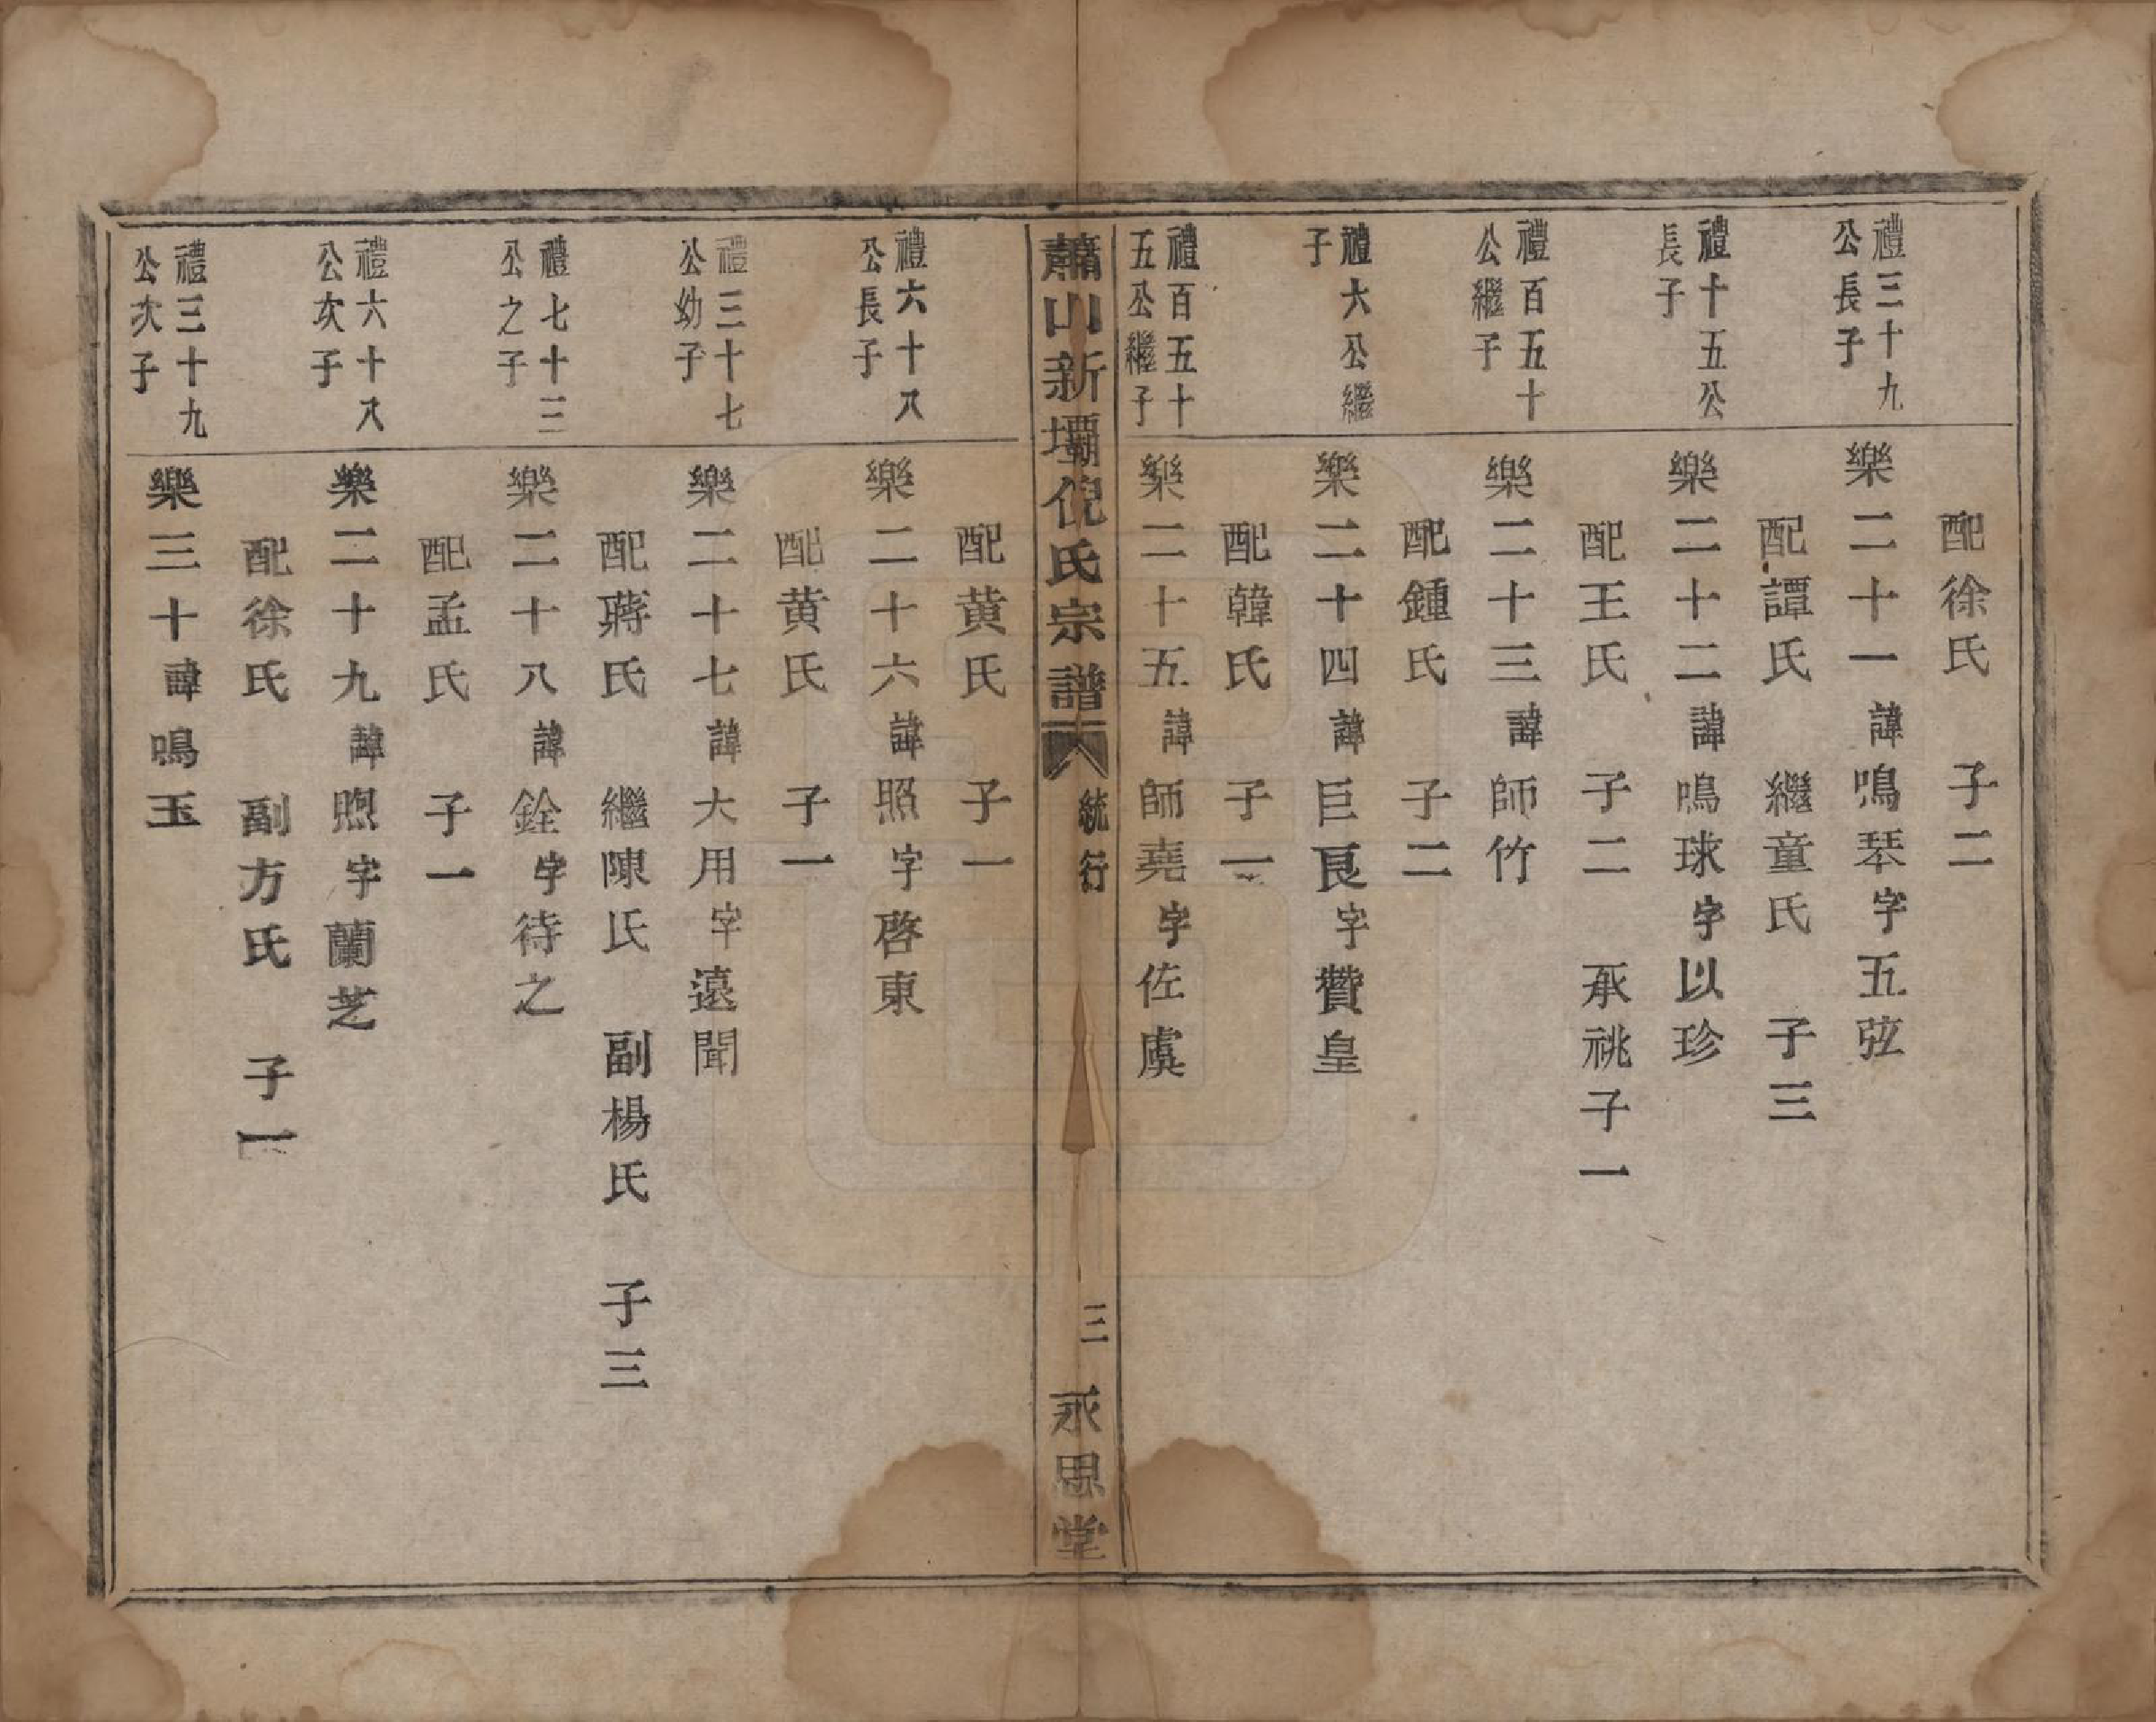 配徐氏　子二
禮三十九
公長子
樂二十一諱鳴琴字五弦
配譚氏　繼童氏　子三
禮十五公
長子
樂二十二諱鳴球字以珍
配王氏　子二　承祧子一
禮百五十
公繼子
樂二十三諱師竹
配鍾氏　子二
禮六公繼
子
樂二十四諱巨良字贊皇
配韓氏　子一
禮百五十
五公繼子
樂二十五諱師堯字佐虞
蕭山新壩倪氏宗譜　統行　三　永思堂
配黃氏　子一
禮六十八
公長子
樂二十六諱照字啓東
配黃氏　子一
禮三十七
公幼子
樂二十七諱大用字遠聞
配蔣氏　繼陳氏　副楊氏　子三
禮七十三
公之子
樂二十八諱銓字待之
配孟氏　子一
禮六十八
公次子
樂二十九諱煦字蘭芝
配徐氏　副方氏　子一
禮三十九
公次子
樂三十諱鳴玉